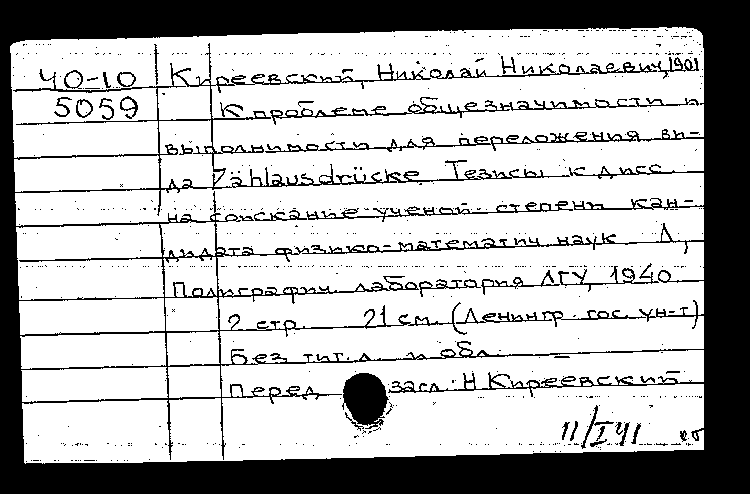 40-10 Киреевский, Николай Николаевич, 1901
5059 К проблеме общезначимости и
выполнимости для переложения ви-
да Zählausdrücke Тезисы к дисс.
на соискание ученой степени кан-
дидата физико-математич. наук Л,
Полиграфич. лаборатория ЛГУ, 1940
2 стр. 21 см. (Ленингр. гос. ун-т)
Без тит. л. и обл.
Перед загл.: Н. Киреевский.
11/I 41